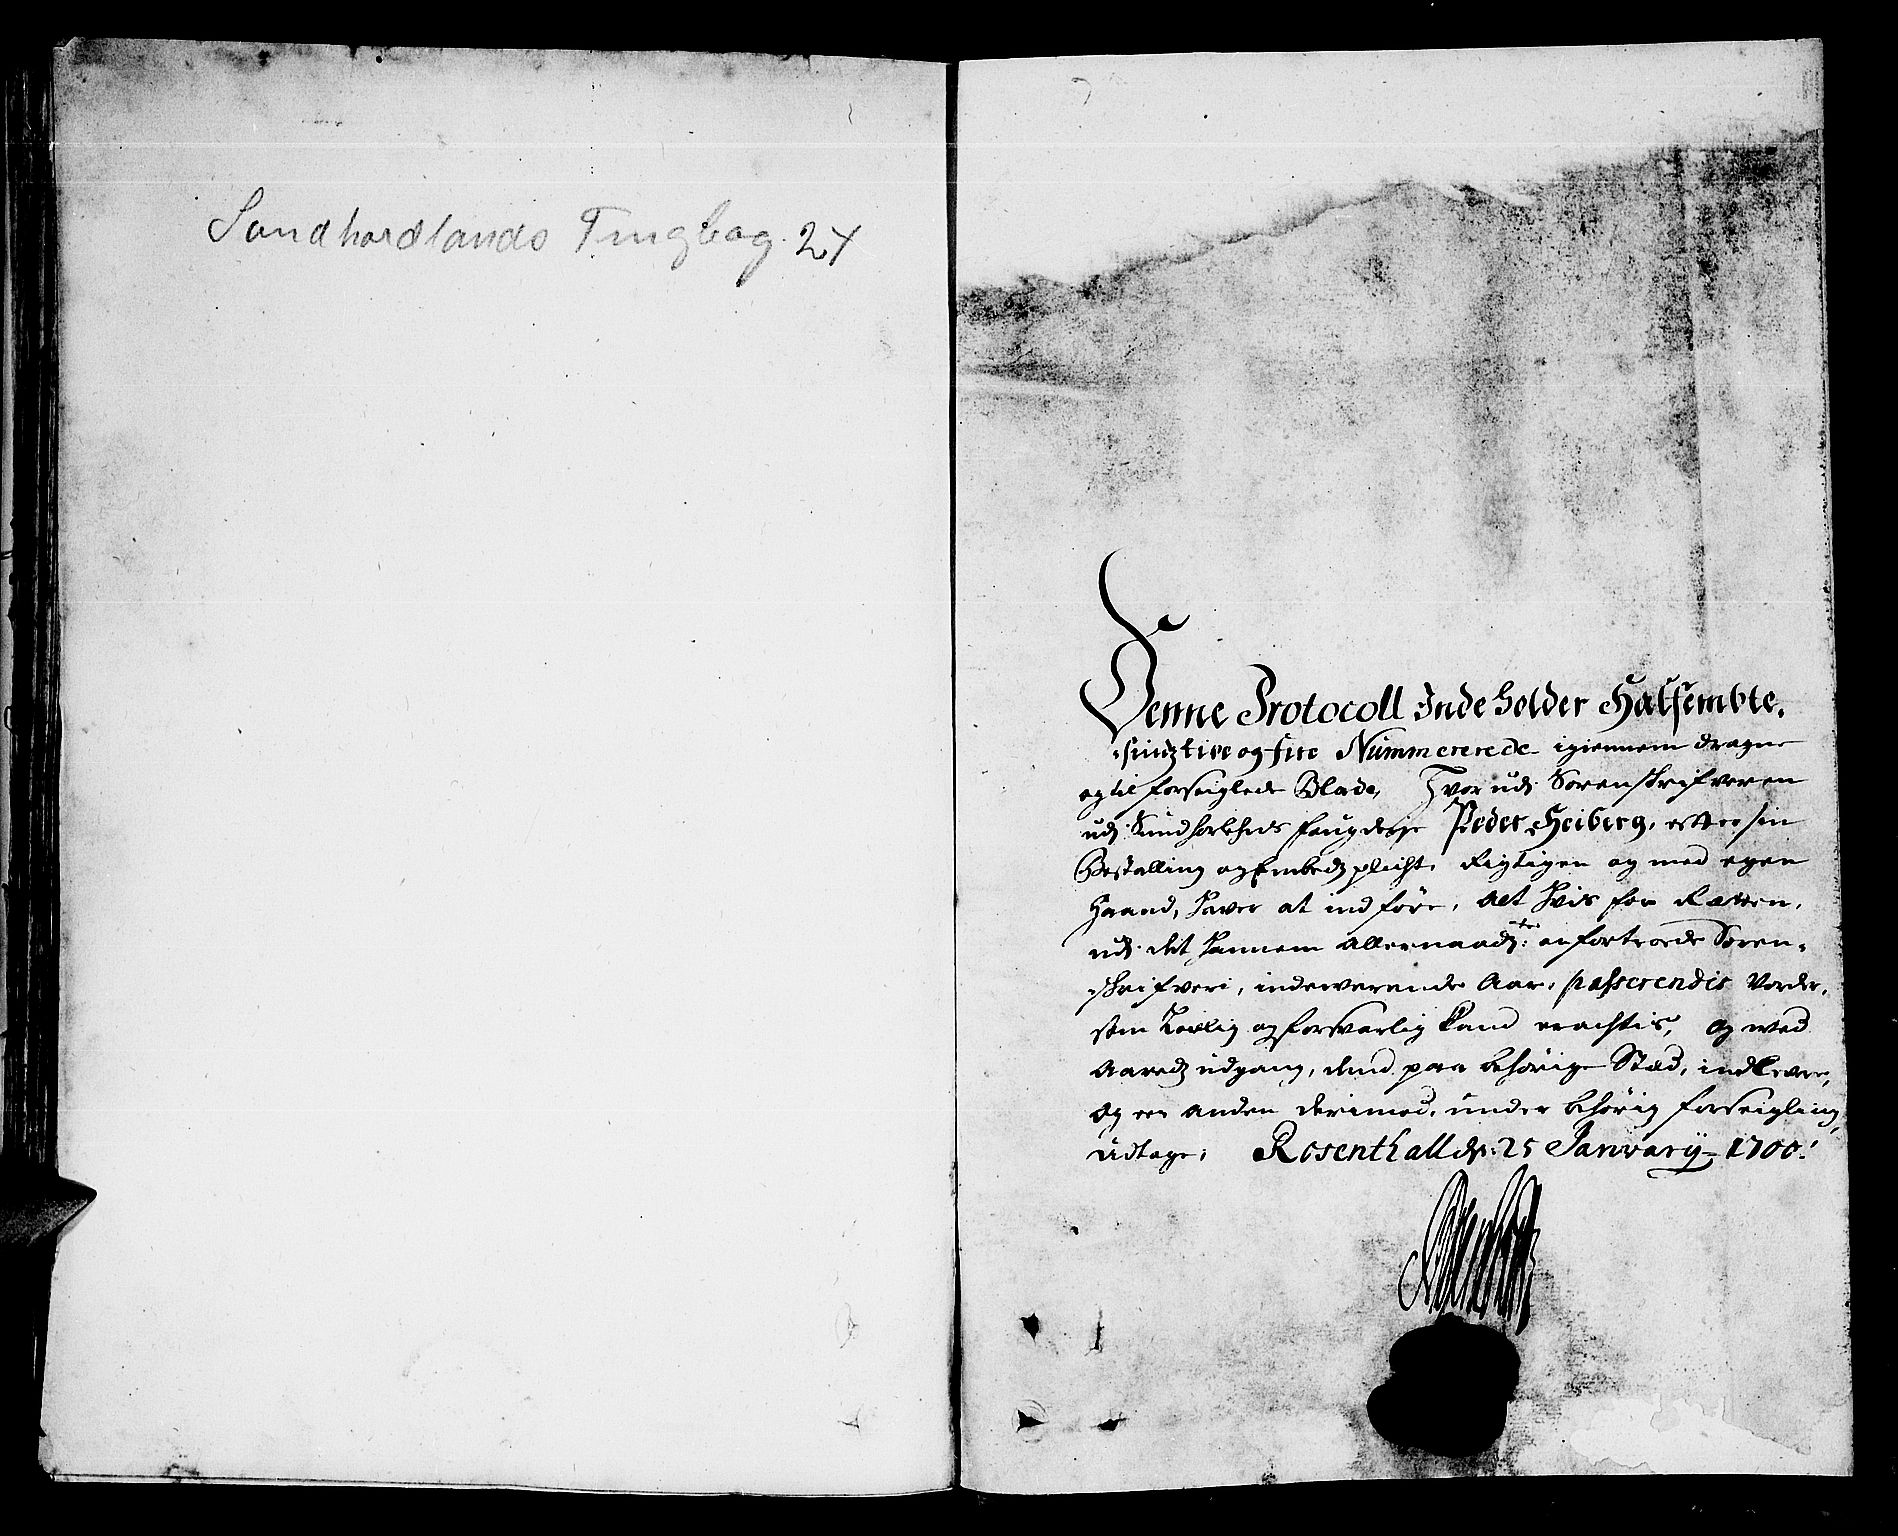 Sundhordlands Tingbog. 24
Denne Protocoll Indeholder Halfsembte,
-sindztive og fire Nummererede igiennem dragne
og til forseiglede Blade, Hvorudj Sorenskrifveren
udj Sundhorlehns fougderje Peder Heiberg, efter sin
Bestalling og Embedz plicht, Rigtigen og med egen
Haand, haver at indføre, Alt hvis for Retten,
udj det hannem Allernaadigste anfortroede Soren-
-skrifveri, indewerende Aar, passerendis vorder,
som Lovlig og forsvarlig kand eractis, og wed
Aaredz udgang, dend paa behörige Stæd, indlevere,
og een anden derimod, under behörig forseigling,
udtage, Rosenthall dn: 25 January 1700.